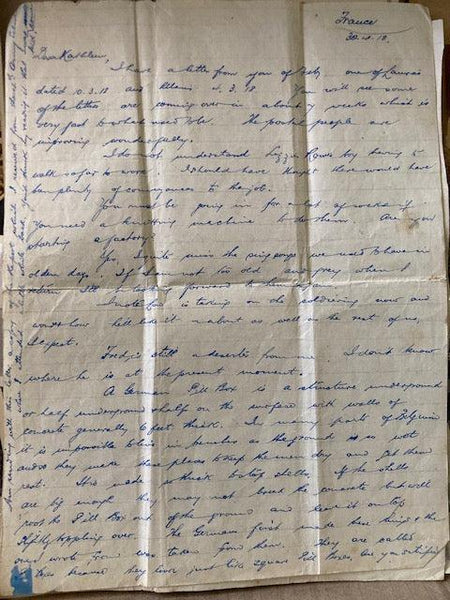 France
30.4.18.
Dear Kathleen,
I have a letter from you of Feb, one of Laura's
dated 10.3.18 and 4.3.18. You will see some
of the letters are coming over in about 7 weeks which is
very fast to what used to be. The postal people are
improving wonderfully.
I do not understand Lizzie boy having to
walk so far to work. I should have thought there would have
been plenty of conveyances to the job.
You must be going in for a lot of socks if
you need a knitting machine to do them. Are you
starting a factory?
Yes, I quite miss the we used to have in
olden days. If I am not too old and grey when I
return I'll be looking forward to them again.
is taking on the soldiering now and
how he'll like it about as well as the rest of us,
I expect.
Fred is still a deserter from me. I don't know
where he is at the present moment.
A German Pill Box is a structure underground
or half underground & half on the surface with walls of
concrete generally 6 feet thick. In many parts of Belgium
it is impossible to live in trenches as the ground is so wet
and so they make these places to keep the men dry and let them
rest. It is made so thick to stop shells. If the shells
are big enough they may not break the concrete but will
root the Pill Box out of the ground and leave it on top
slightly toppling over. The Germans first made these things & the
one I wrote from was taken from them. They are called
Pill Boxes because they look just like square Pill Boxes. Are you satisfied
Am sending with this letter a copy of the